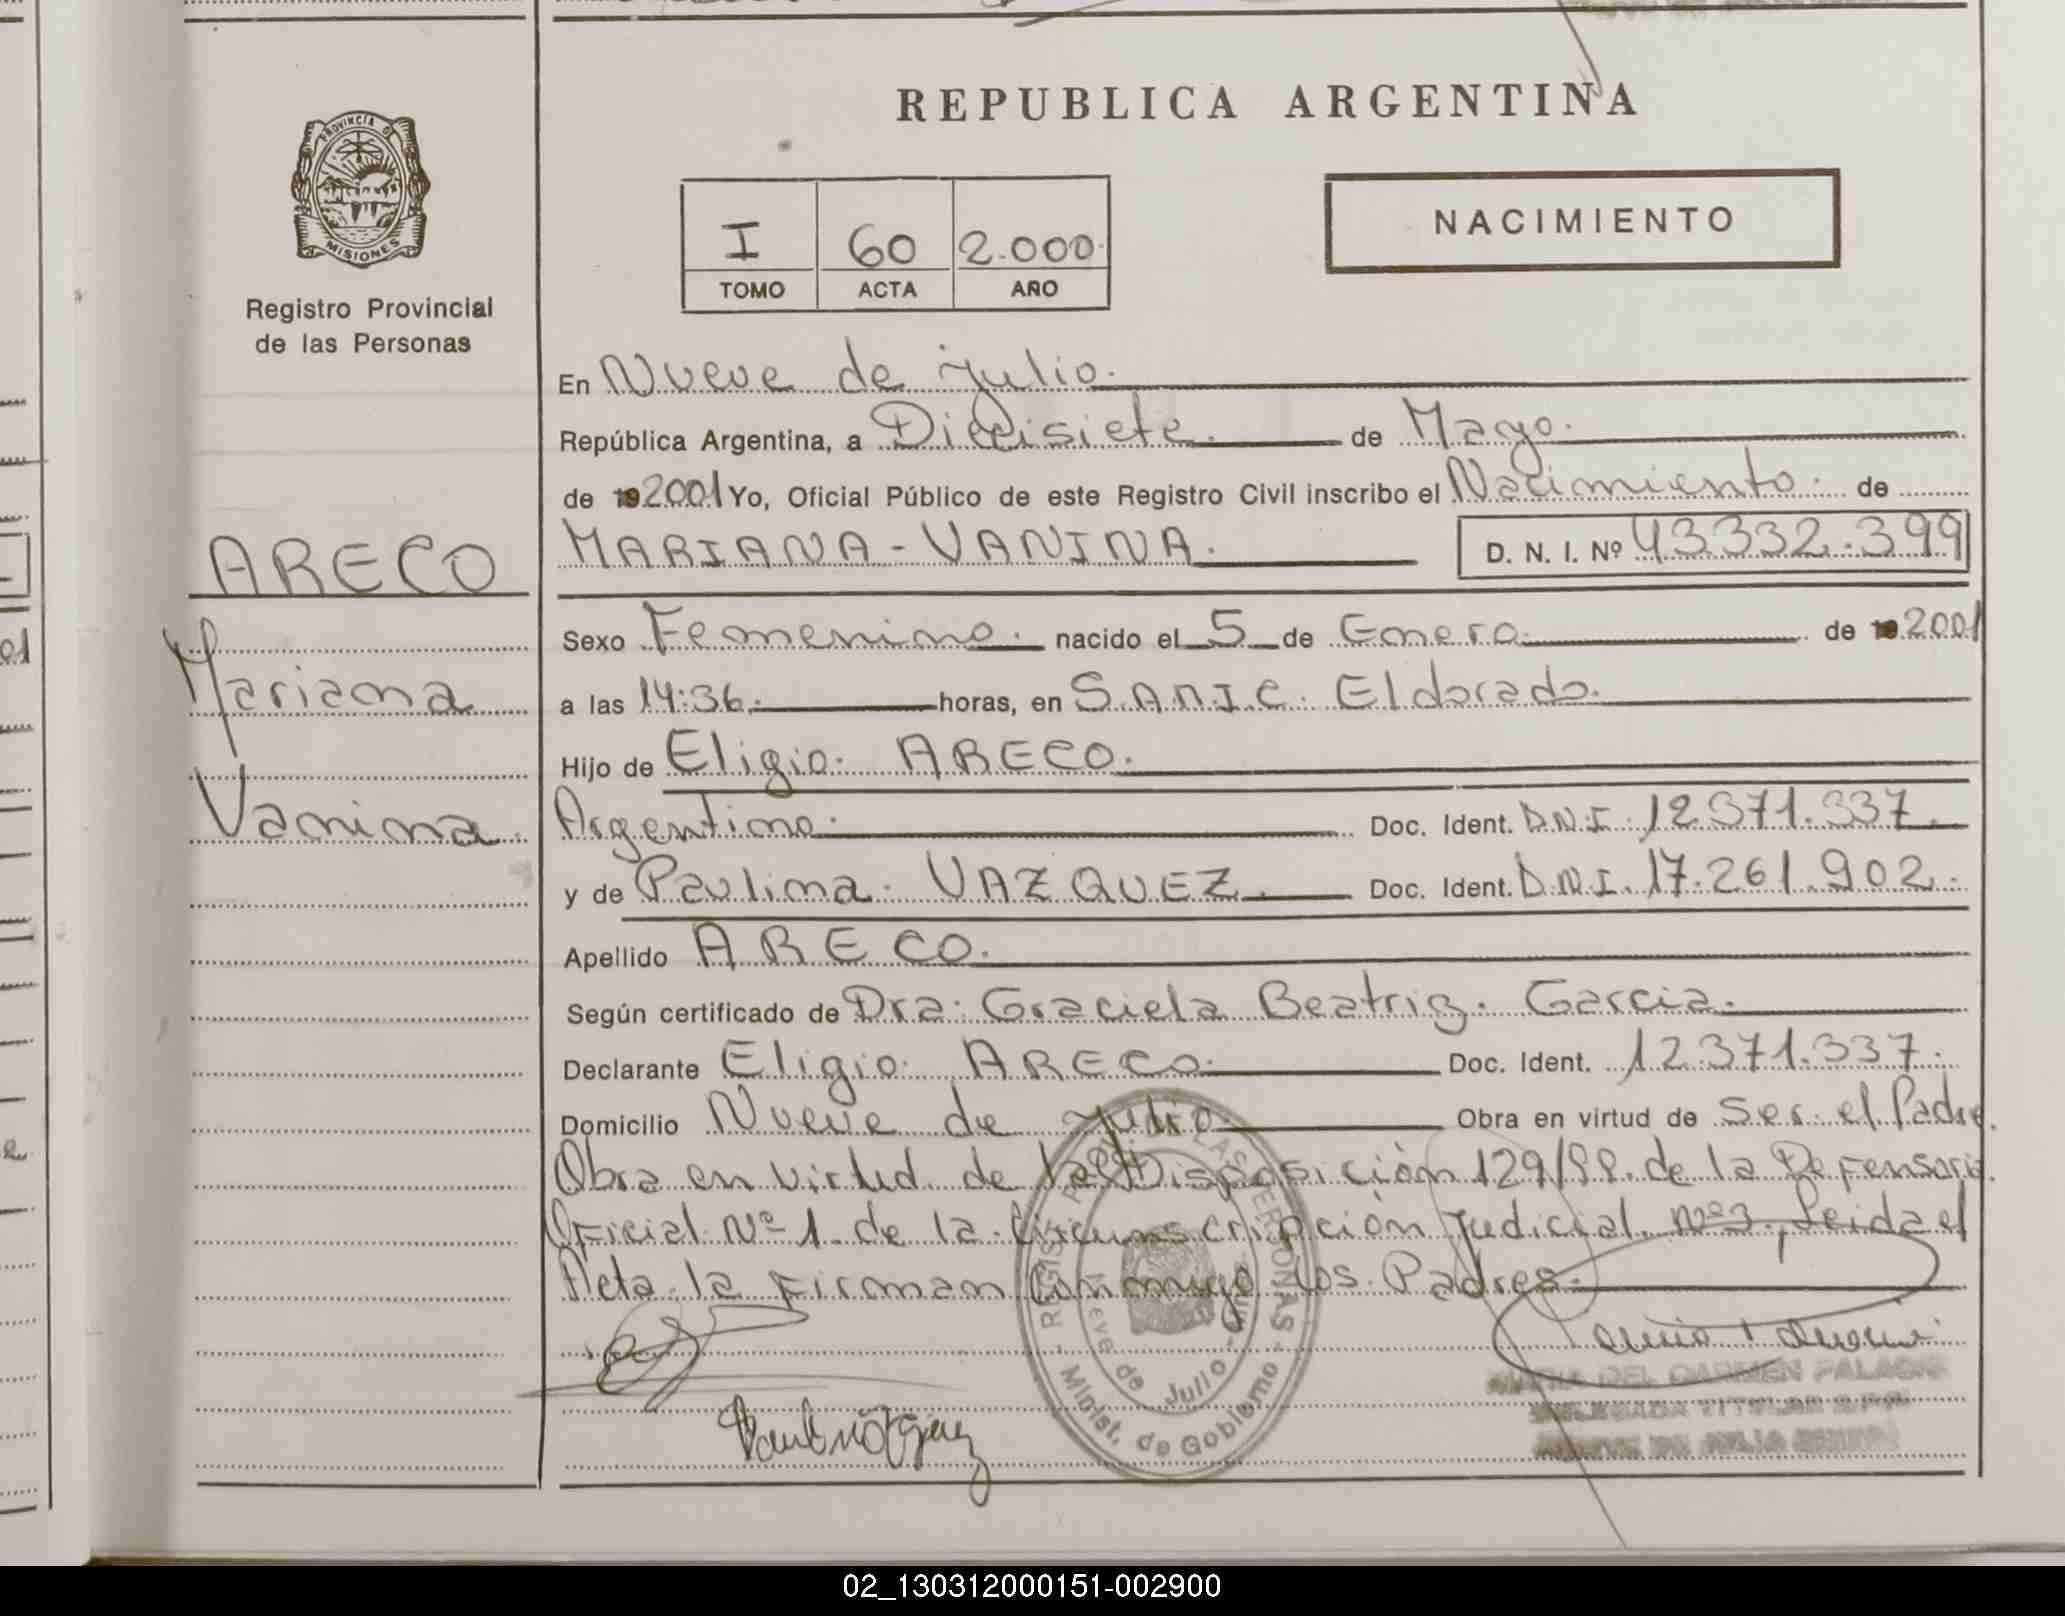 REPUBLICA ARGENTINA
PROVINCIA DE
MISIONES
Registro Provincial
de las Personas
I 60 2.000.
TOMO ACTA AÑO
NACIMIENTO
En Nueve de julio.
República Argentina, a Diecisiete. de Mayo.
de 192001 Yo, Oficial Público de este Registro Civil inscribo el Nacimiento. de
ARECO
Mariana
Vanina.
MARIANA-VANINA. D. N. I. Nº 43332.399
Sexo Femenino. nacido el 5 de Enero de 192001
a las 14:36. horas, en S.A.M.I.C. Eldorado.
Hijo de Eligio. ARECO.
Argentino. Doc. Ident. D.N.I. 12.371.337.
y de Paulina. VAZQUEZ. Doc. Ident. D.N.I. 17.261.902.
Apellido ARECO.
Según certificado de Dra. Graciela Beatriz. Garcia.
Declarante Eligio. ARECO. Doc. Ident. 12.371.337.
Domicilio Nueve de julio. Obra en virtud de Ser el Padre.
Obra en virtud de la Disposición 129/99. de la Defensoria
Oficial Nº 1 de la Circunscripción judicial Nº 3, Leida el
Acta la Firman Conmigo los Padres.
MARIA DEL CARMEN
Minist. de Gobierno
Nueve de Julio
02_130312000151-002900